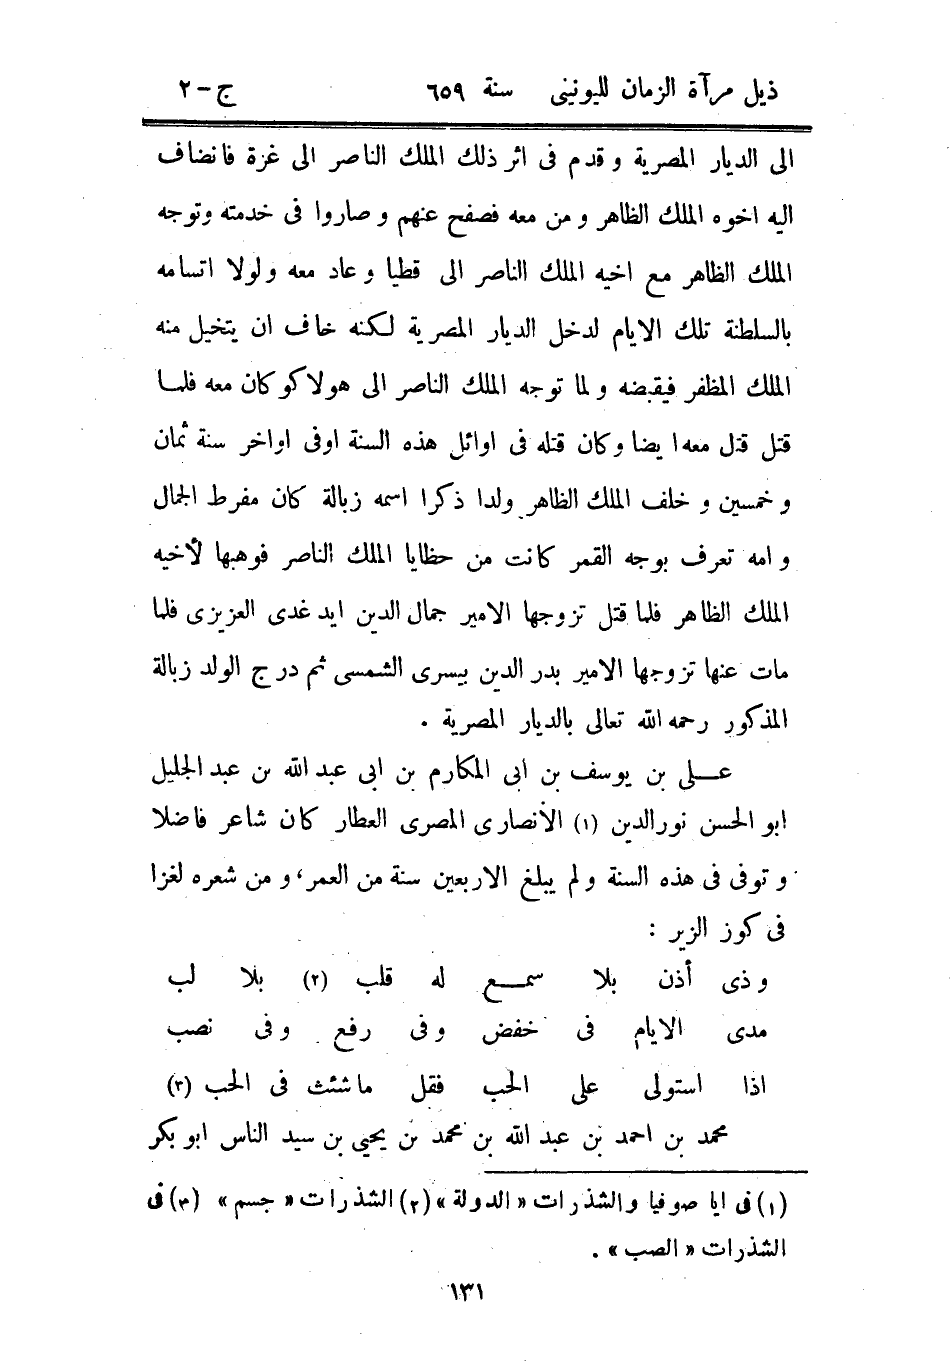 ذيل مرآة الزمان لليونينى سنة ٦٥٩ ج-٢
الى الديار المصرية وقدم فى اثر ذلك الملك الناصر الى غزة فانضاف
اليه اخوه الملك الظاهر ومن معه فصفح عنهم وصاروا فى خدمته وتوجه
الملك الظاهر مع اخيه الملك الناصر الى قطيا وعاد معه ولولا اتسامه
بالسلطنة تلك الايام لدخل الديار المصرية لكنه خاف ان يتخيل منه
الملك المظفر فيقبضه ولما توجه الملك الناصر الى هولاكو كان معه فلما
قتل قتل معه ايضا وكان قتله فى اوائل هذه السنة اوفى اواخر سنة ثمان
وخمسين وخلف الملك الظاهر ولدا ذكرا اسمه زبالة كان مفرط الجمال
وامه تعرف بوجه القمر كانت من حظايا الملك الناصر فوهبها لأخيه
الملك الظاهر فلما قتل تزوجها الامير جمال الدين ايدغدى العزيزى فلما
مات عنها تزوجها الامير بدر الدين بيسرى الشمسى ثم درج الولد زبالة
المذكور رحمه الله تعالى بالديار المصرية .
على بن يوسف بن ابى المكارم بن ابى عبد الله بن عبد الجليل
ابو الحسن نورالدين (١) الأنصارى المصرى العطار كان شاعر فاضلا
وتوفى فى هذه السنة ولم يبلغ الاربعين سنة من العمر، ومن شعره لغزا
فى كوز الزير :
وذى أذن بلا سمع له قلب (٢) بلا لب
مدى الايام فى خفض وفى رفع وفى نصب
اذا استولى على الحب فقل ماشئت فى الحب (٣)
محمد بن احمد بن عبد الله بن محمد بن يحيى بن سيد الناس ابو بكر
(١) فى ايا صوفيا والشذرات « الدولة » (٢) الشذرات « جسم » (٣) فى
الشذرات « الصب » .
١٣١